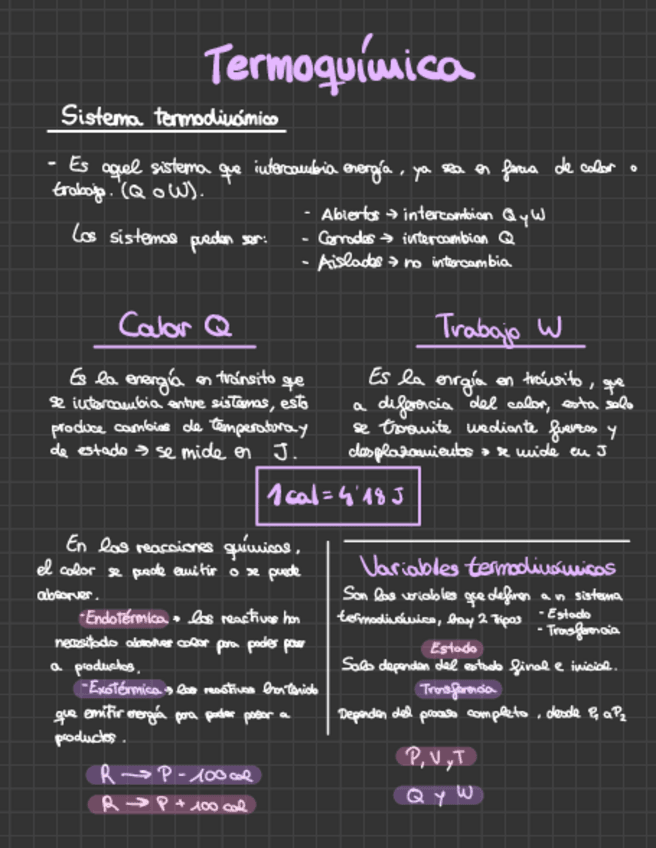 Termoquímica
Sistema termodinámico
- Es aquel sistema que intercambia energía, ya sea en forma de calor o
trabajo. (Q o W).
Los sistemas pueden ser:
- Abiertos → intercambian Q y W
- Cerrados → intercambian Q
- Aislados → no intercambia
Calor Q
Es la energía en tránsito que
se intercambia entre sistemas, esto
produce cambios de temperatura y
de estado → se mide en J.
Trabajo W
Es la enrgía en tránsito, que
a diferencia del calor, esta solo
se transmite mediante fuerzas y
desplazamientos → se mide en J
1 cal = 4'18 J
En las reacciones químicas,
el calor se puede emitir o se puede
absorver.
- Endotérmica → los reactivos han
necesitado absorver calor para poder pasar
a productos.
- Exotérmica → los reactivos han tenido
que emitir energía para poder pasar a
productos.
R → P - 100 cal
R → P + 100 cal
Variables termodinámicas
Son las variables que definen a un sistema
termodinámico, hay 2 tipos
- Estado
- Transferencia
Estado
Solo dependen del estado final e inicial.
Transferencia
Dependen del proceso completo, desde P₁ a P₂
P, V y T
Q y W